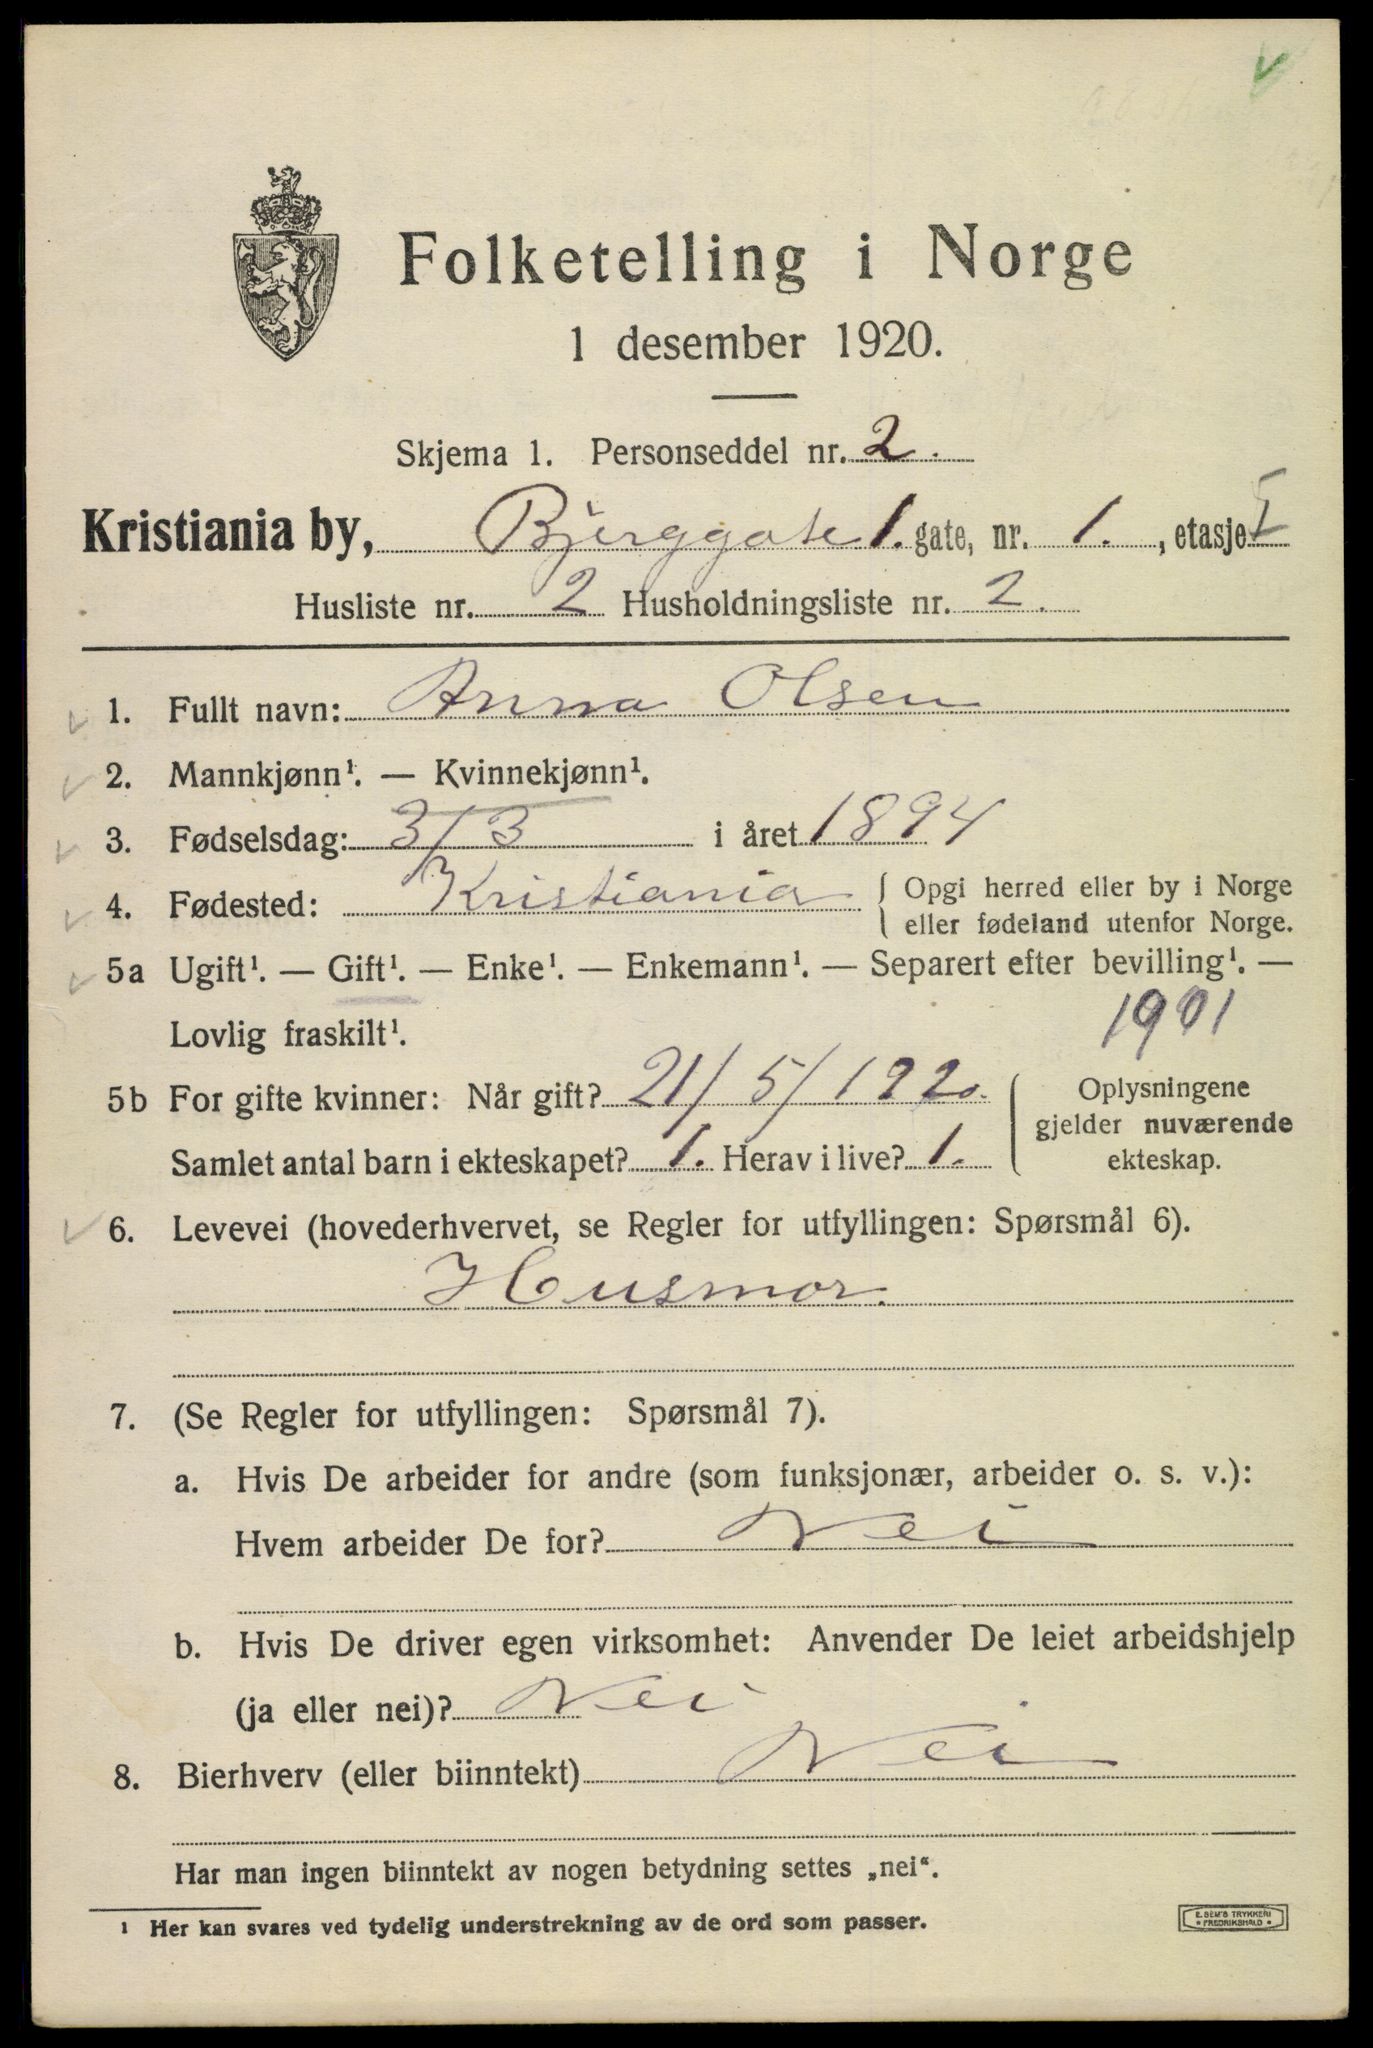 Folketelling i Norge
1 desember 1920.
Skjema 1. Personseddel nr. 2.
Kristiania by, Bjerggate 1. gate, nr. 1., etasje I
Husliste nr. 2 Husholdningsliste nr. 2.
1. Fullt navn: Anna Olsen
2. Mannkjønn¹. — Kvinnekjønn¹.
3. Fødselsdag: 3/3 i året 1894
4. Fødested: Kristiania { Opgi herred eller by i Norge
eller fødeland utenfor Norge.
5a Ugift¹. — Gift¹. — Enke¹. — Enkemann¹. — Separert efter bevilling¹. —
Lovlig fraskilt¹. 1901
5b For gifte kvinner: Når gift? 21/5/1920. Oplysningene
gjelder nuværende
Samlet antal barn i ekteskapet? 1. Herav i live? 1. ekteskap.
6. Levevei (hovederhvervet, se Regler for utfyllingen: Spørsmål 6).
Husmor.
7. (Se Regler for utfyllingen: Spørsmål 7).
a. Hvis De arbeider for andre (som funksjonær, arbeider o. s. v.):
Hvem arbeider De for? Nei
b. Hvis De driver egen virksomhet: Anvender De leiet arbeidshjelp
(ja eller nei)? Nei
8. Bierhverv (eller biinntekt) Nei
Har man ingen biinntekt av nogen betydning settes „nei“.
¹ Her kan svares ved tydelig understrekning av de ord som passer.
E. SEM'S TRYKKERI
FREDRIKSHALD